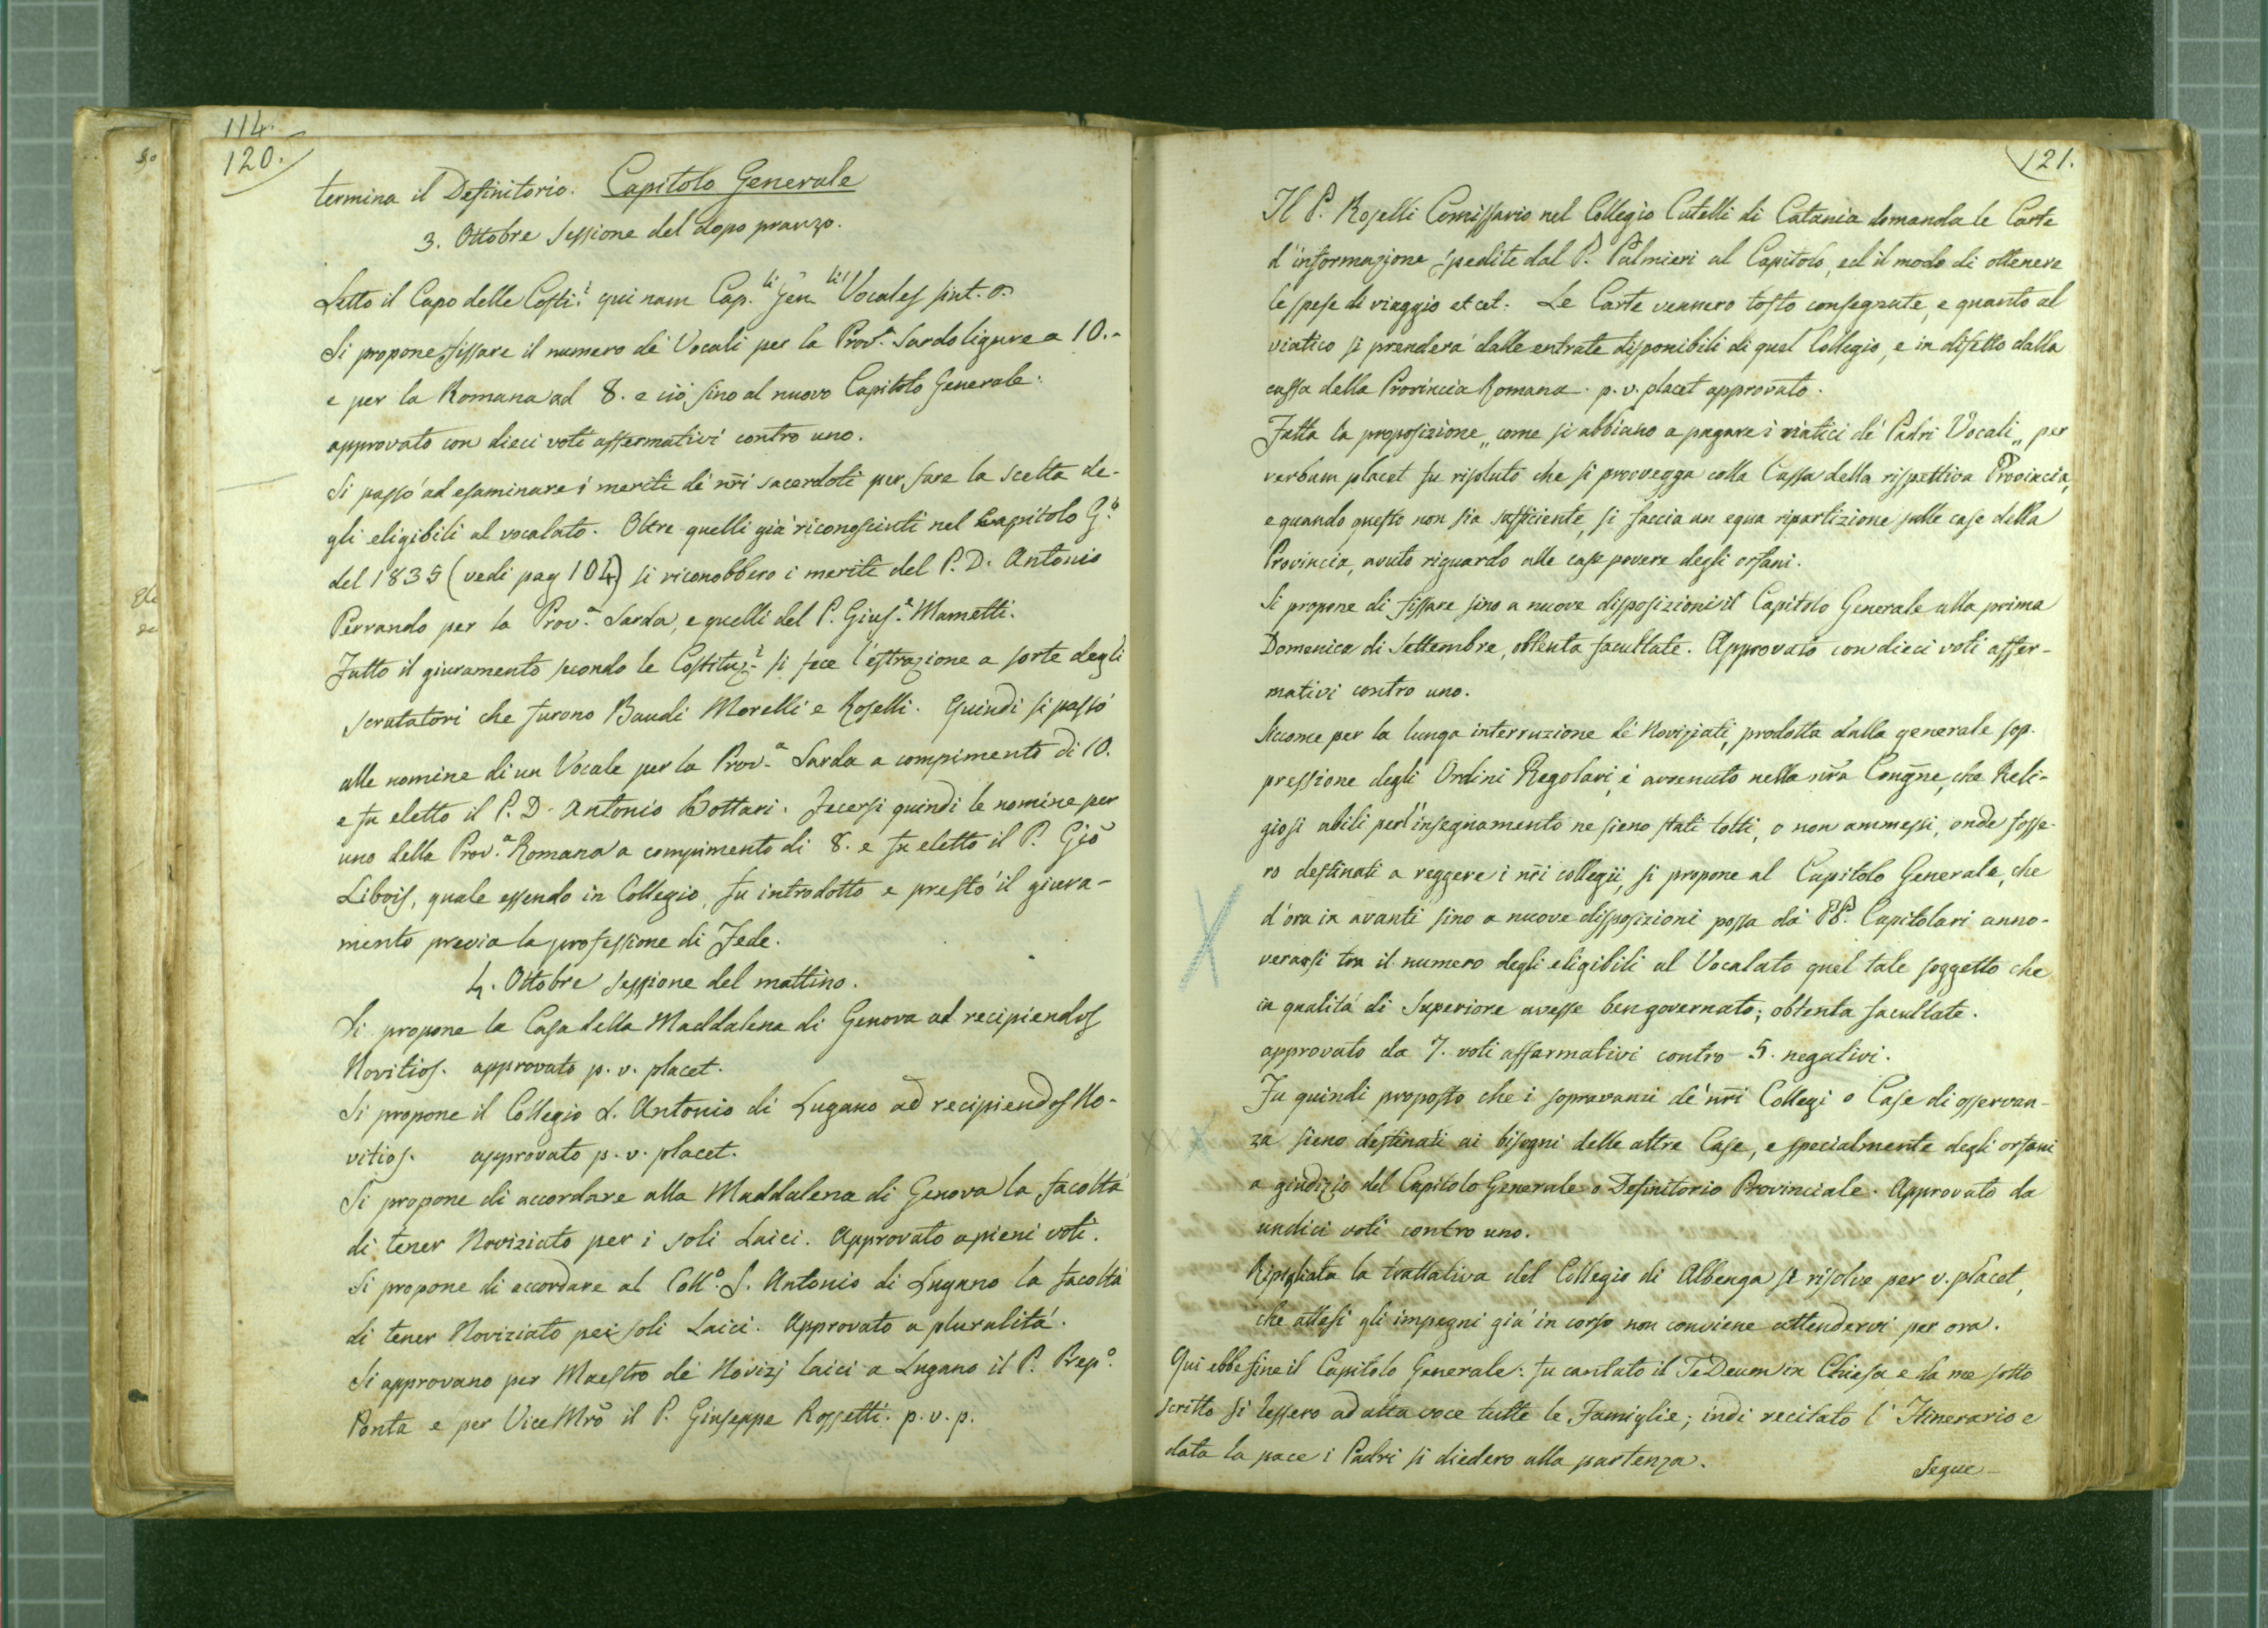 114.
120.
termina il Definitorio. Capitolo Generale
3. Ottobre sessione del dopo pranzo.
Letto il Capo delle Costi.i qui nam Cap.li Gen.li Vocales sint.
Si propone fissare il numero de' Vocali per la Prov.a Sardo ligure a 10.-
e per la Romana ad 8. e ciò sino al nuovo Capitolo Generale:
approvato con dieci voti affermativi contro uno.
Si passò ad esaminare i meriti de' nr̃i sacerdoti per fare la scelta de-
gli eligibili al vocalato. Oltre quelli già riconosciuti nel Capitolo G.e
del 1835 (vedi pag 104) si riconobbero i meriti del P. D. Antonio
Perrando per la Prov.a Sarda, e quelli del P. Gius.e Mametti.
Fatto il giuramento secondo le Costituz.i si fece l'estrazione a sorte degli
scrutatori che furono Baudi Morelli e Roselli. Quindi si passò
alle nomine di un Vocale per la Prov.a Sarda a compimento di 10.
e fu eletto il P. D. Antonio Bottari. Fecersi quindi le nomine per
uno della Prov.a Romana a compimento di 8. e fu eletto il P. Gio
Libois, quale essendo in Collegio, fu introdotto e prestò il giura-
mento previa la professione di Fede.
4. Ottobre sessione del mattino.
Si propone la Casa della Maddalena di Genova ad recipiendos
Novitios. approvato p. v. placet.
Si propone il Collegio S. Antonio di Lugano ad recipiendos No-
vitios. approvato p. v. placet.
Si propone di accordare alla Maddalena di Genova la facoltà
di tener Noviziato per i soli Laici. Approvato a pieni voti.
Si propone di accordare al Coll.o S. Antonio di Lugano la facoltà
di tener Noviziato pei soli Laici. Approvato a pluralità.
Si approvano per Maestro de' Novizj laici a Lugano il P. Prep.o
Ponta e per Vice Mrõ il P. Giuseppe Rossetti. p. v. p.
121.
Il P. Roselli Comissario nel Collegio Cutelli di Catania domanda le Carte
d'informazione spedite dal P. Palmieri al Capitolo, ed il modo di ottenere
le spese di viaggio et cet. Le Carte vennero tosto consegnate, e quanto al
viatico si prenderà dalle entrate disponibili di quel Collegio, e in difetto dalla
cassa della Provincia Romana. p. v. placet approvato.
Fatta la proposizione „come si abbiano a pagare i viatici de' Padri Vocali„ per
verbum placet fu risoluto che si provvegga colla Cassa della rispettiva Provincia,
e quando questo non sia sufficiente, si faccia un equa ripartizione sulle case della
Provincia, avuto riguardo alle case povere degli orfani.
Si propone di fissare sino a nuove disposizioni il Capitolo Generale alla prima
Domenica di Settembre, obtenta facultate. Approvato con dieci voti affer-
mativi contro uno.
Siccome per la lunga interruzione de' Noviziati, prodotta dalla generale sop-
pressione degli Ordini Regolari, è avvenuto nella nr̃a Congñe, che Reli-
giosi abili per l'insegnamento ne sieno stati tolti, o non ammessi, onde fosse-
ro destinati a reggere i nr̃i collegii, si propone al Capitolo Generale, che
d'ora in avanti sino a nuove disposizioni possa da' PP. Capitolari anno-
verarsi tra il numero degli eligibili al Vocalato quel tale soggetto che
in qualità di Superiore avesse ben governato; obtenta facultate.
approvato da 7. voti affermativi contro 5. negativi.
Fu quindi proposto che i sopravanzi de' nr̃i Collegi o Case di osservan-
za sieno destinati ai bisogni delle altre Case, e specialmente degli orfani
a giudizio del Capitolo Generale o Definitorio Provinciale. Approvato da
undici voti contro uno.
Ripigliata la trattativa del Collegio di Albenga si risolve per v. placet,
che attesi gli impegni già in corso non conviene attendervi per ora.
Qui ebbe fine il Capitolo Generale: fu cantato il Te Deum in Chiesa e da me sotto
scritto si lessero ad alta voce tutte le Famiglie; indi recitato l'Itinerario e
data la pace i Padri si diedero alla partenza.
Segue